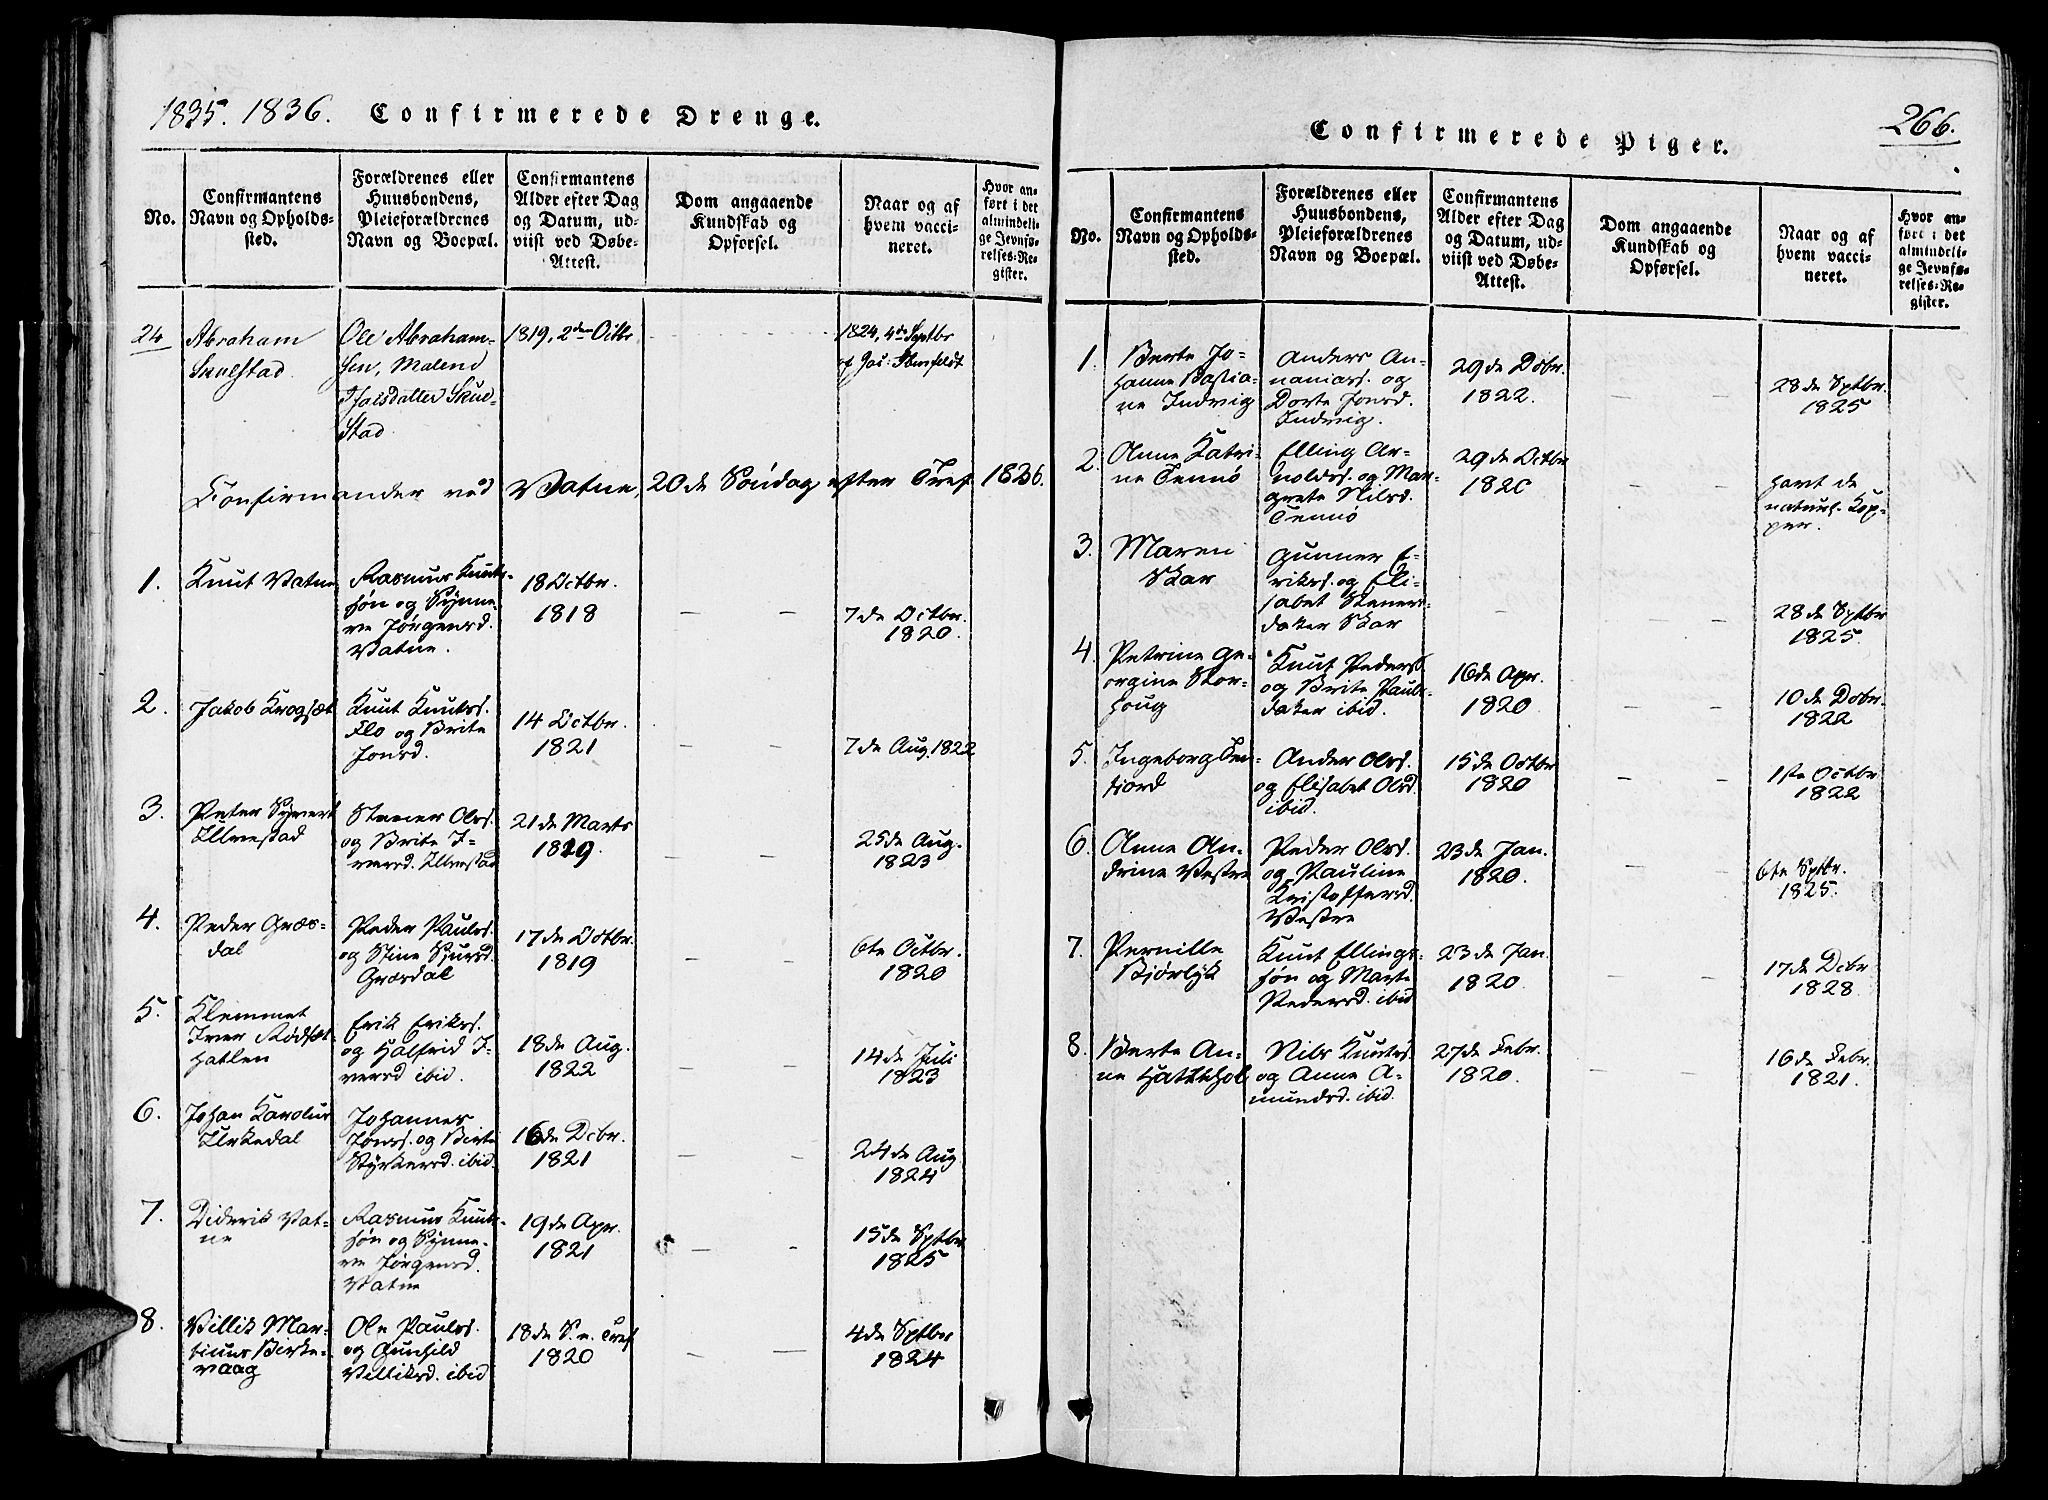 1835. 1836. Confirmerede Drenge.
No.
Confirmantens
Navn og Opholds-
sted.
Forældrenes eller
Huusbondens,
Pleieforældrenes
Navn og Boepæl.
Confirmantens
Alder efter Dag
og Datum, ud-
viist ved Døbe-
Attest.
Dom angaaende
Kundskab og
Opførsel.
Naar og af
hvem vacci-
neret.
Hvor an-
ført i det
almindeli-
ge Jevnfø-
relses-Re-
gister.
24
Abraham
Skulstad
Ole Abraham-
sen, Malene
Skul-
stad
1819, 2den Octbr
1824, 4de Septbr
Confirmander ved Vatne, 20de Søndag efter Tref. 1836.
1.
Knut Vatne
Rasmus Knuts-
søn og Synne-
ve Jørgensd.
Vatne.
18 Octbr.
1818
7de Octbr.
1820.
2.
Jakob Krogsæt
Knut Knutss.
Flo og Brite
Jonsd.
14 Octbr.
1821
7de Aug. 1822
3.
Peter Syvert
Ulvestad
Stener Olss.
og Brite I-
versd. Ulvestad
21de Marts
1819.
25de Aug.
1823
4.
Peder Græs-
dal
Peder Paulss.
og Stine Sjursd.
Græsdal
17de Octbr.
1819
6te Octbr.
1820
5.
Klemmet
Iver Rødset-
hatlen
Erik Erikss.
og Halfrid I-
versd ibid.
18de Aug.
1822
14de Juli
1823
6.
Johan Karolus
Urkedal
Johannes
Jonss. og Birte
Styrkersd. ibid.
16de Dcbr.
1821
24de Aug
1824
7.
Diderik Vat-
ne
Rasmus Knuts-
søn og Synne-
ve Jørgensd.
Vatne
19de Apr.
1821
15de Sptbr
1825
8.
Villik Mar-
tinus Birke-
vaag
Ole Paulss.
og Gunhild
Villiksd. ibid
18de S. e. Tref
1820
4de Sptbr
1824
266.
Confirmerede Piger.
No.
Confirmantens
Navn og Opholds-
sted.
Forældrenes eller
Huusbondens,
Pleieforældrenes
Navn og Boepæl.
Confirmantens
Alder efter Dag
og Datum, ud-
viist ved Døbe-
Attest.
Dom angaaende
Kundskab og
Opførsel.
Naar og af
hvem vacci-
neret.
Hvor an-
ført i det
almindeli-
ge Jevnfø-
relses-Re-
gister.
1.
Berte Jo-
hanne Bastia-
ne Indvig
Anders An-
naniass. og
Dorte Jonsd.
Indvig.
29de Dcbr.
1822.
28de Sptbr.
1825
2.
Anne Katri-
ne Tennø
Elling Ar-
noldss. og Mar-
grete Nilsd.
Tennø
29de Octbr
1820
havt de
naturl. Kop-
per.
3.
Maren
Skar
Gunner E-
rikss. og Eli-
sabet Steners-
dater Skar
28de Sptbr
1825.
4.
Petrine Ge-
orgine Stor-
houg
Knut Pederss.
og Brite Pauls-
dater ibid.
16de Apr.
1820
10de Dcbr.
1822
5.
Ingeborg Ten-
fiord
Ander Olss.
og Elisabet Olsd.
ibid.
15de Octbr
1820
1ste Octbr
1822
6.
Anne An-
drine Vestre
Peder Olss.
og Pauline
Kristoffersd.
Vestre
23de Jan.
1820.
6te Sptbr.
1825.
7.
Pernille
Bjørlyk
Knut Ellings-
søn og Marte
Pedersd. ibid
23de Jan.
1820.
17de Dcbr
1828
8.
Berte An-
ne Hattehol
Nils Knutss.
og Anne A-
mundsd. ibid.
27de Febr.
1820.
16de Febr.
1821.